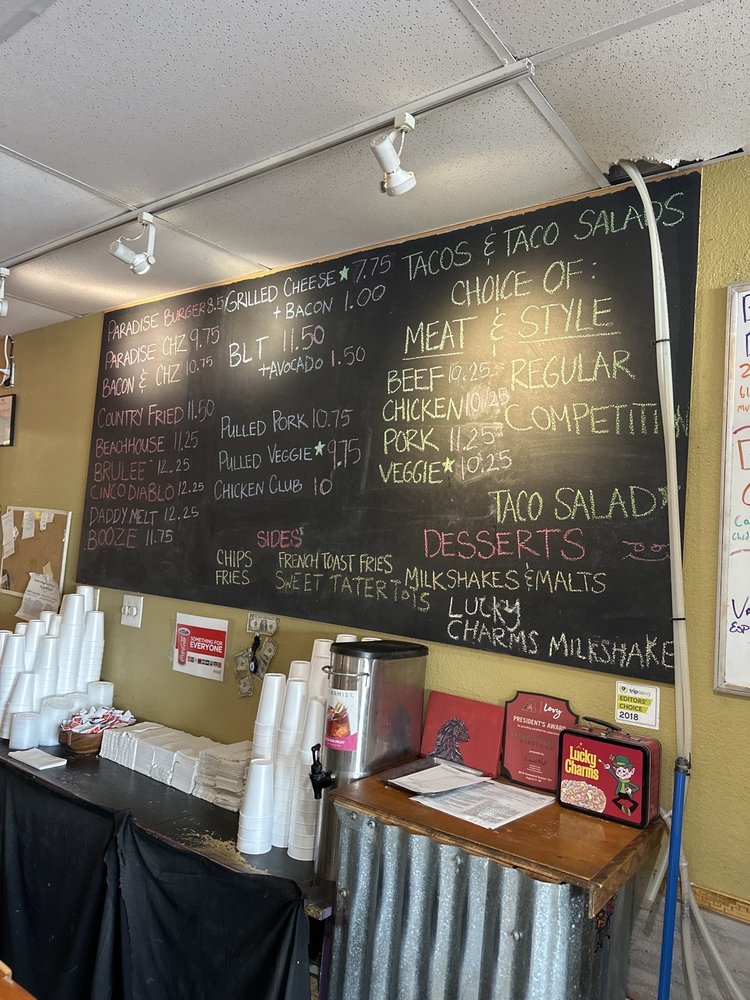 PARADISE BURGER 8.5
PARADISE CHZ 9.75
BACON & CHZ 10.75
COUNTRY FRIED 11.50
BEACHHOUSE 11.25
BRULEE 12.25
CINCO DIABLO 12.25
DADDY MELT 12.25
BOOZE 11.75
GRILLED CHEESE ★ 7.75
+ BACON 1.00
BLT 11.50
+AVOCADO 1.50
PULLED PORK 10.75
PULLED VEGGIE ★ 9.75
CHICKEN CLUB 10
TACOS & TACO SALADS
CHOICE OF:
MEAT & STYLE
BEEF 10.25 REGULAR
CHICKEN 10.25 COMPETITION
PORK 11.25
VEGGIE ★ 10.25
TACO SALAD
SIDES
CHIPS FRENCH TOAST FRIES
FRIES SWEET TATER TOTS
DESSERTS
MILKSHAKES & MALTS
LUCKY
CHARMS MILKSHAKE
SOMETHING FOR
EVERYONE
tripsavvy
EDITORS'
CHOICE
2018
PRESIDENT'S AWARD
Lucky
Charms